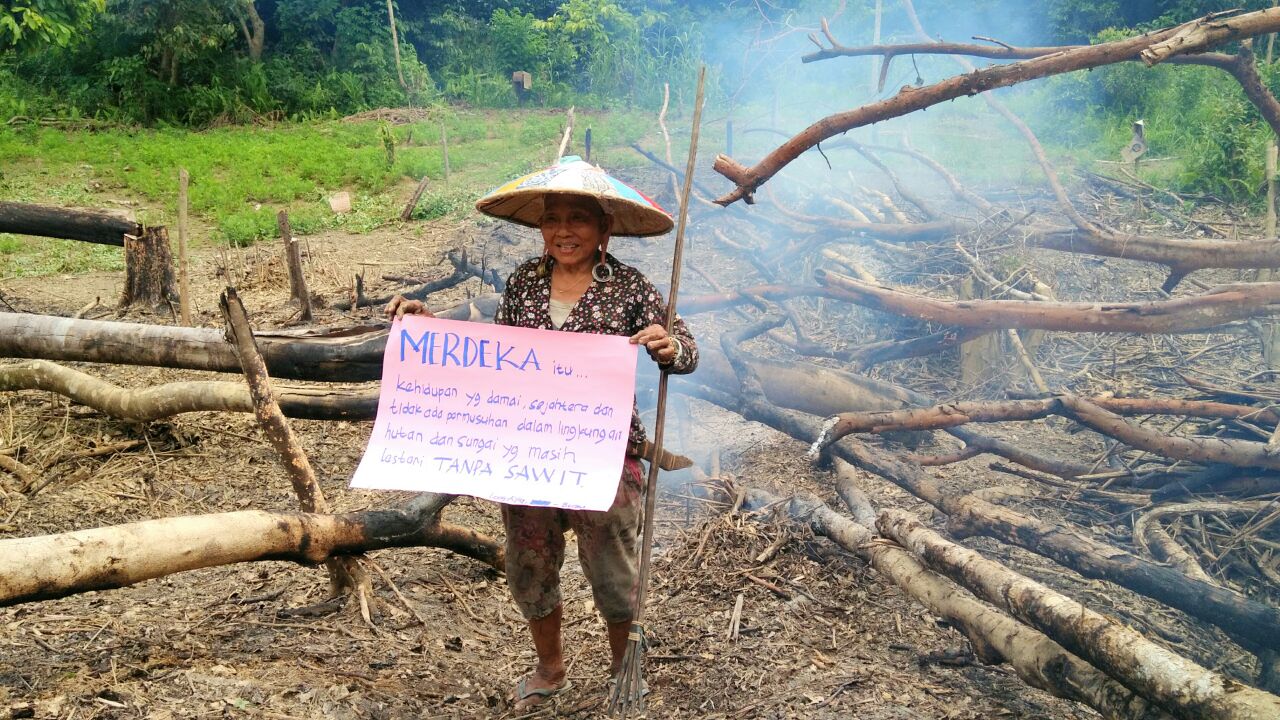 MERDEKA itu...
kehidupan yg damai, sejahtera dan
tidak ada permusuhan dalam lingkungan
hutan dan sungai yg masih
lestari TANPA SAWIT.